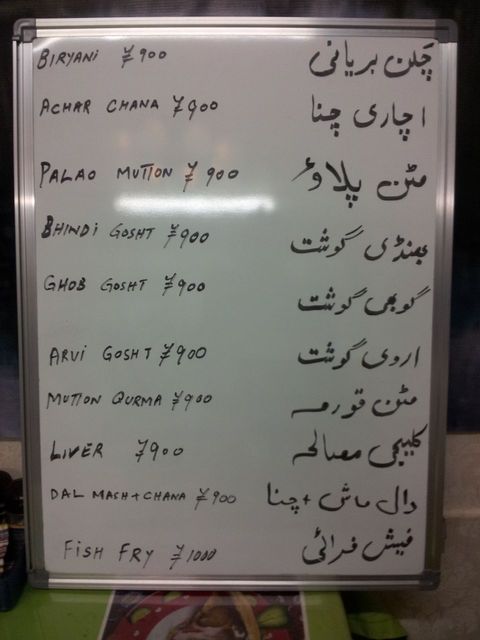 BIRYANI ¥900 چکن بریانی
ACHAR CHANA ¥900 اچاری چنا
PALAO MUTTON ¥900 مٹن پلاؤ
BHINDI GOSHT ¥900 بھنڈی گوشت
GHOB GOSHT ¥900 گوبھی گوشت
ARVI GOSHT ¥900 اروی گوشت
MUTTON QURMA ¥900 مٹن قورمہ
LIVER ¥900 کلیجی مصالحہ
DAL MASH+CHANA ¥900 دال ماش + چنا
FISH FRY ¥1000 فیش فرائی